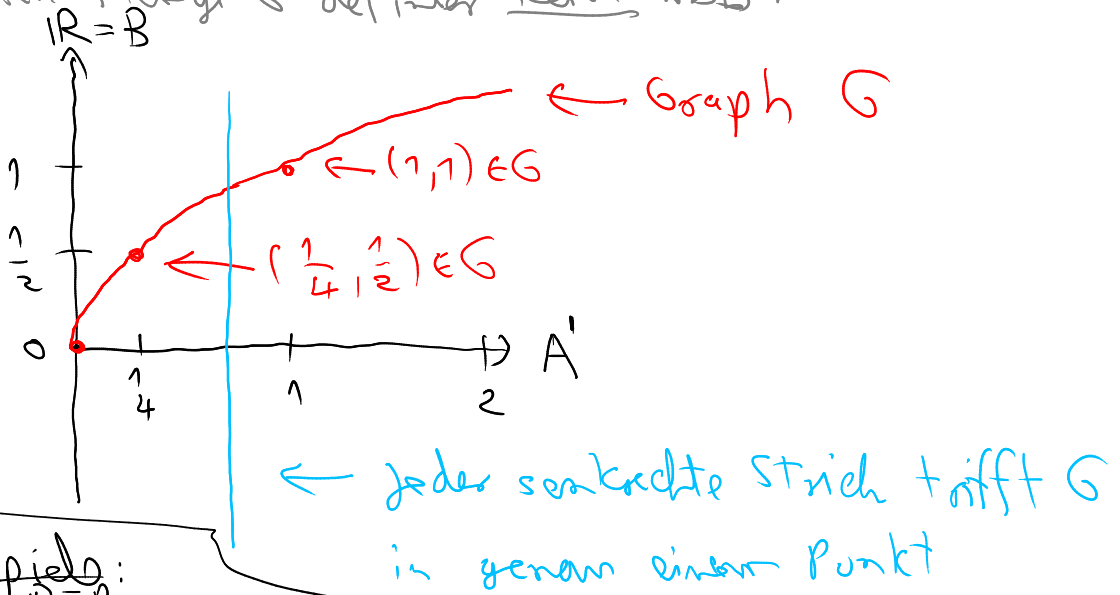 definier
ℝ = B
← Graph G
1
← (1,1) ∈ G
1/2
← (1/4, 1/2) ∈ G
0
A'
1/4
1
2
← jeder senkrechte Strich trifft G
in genau einem Punkt